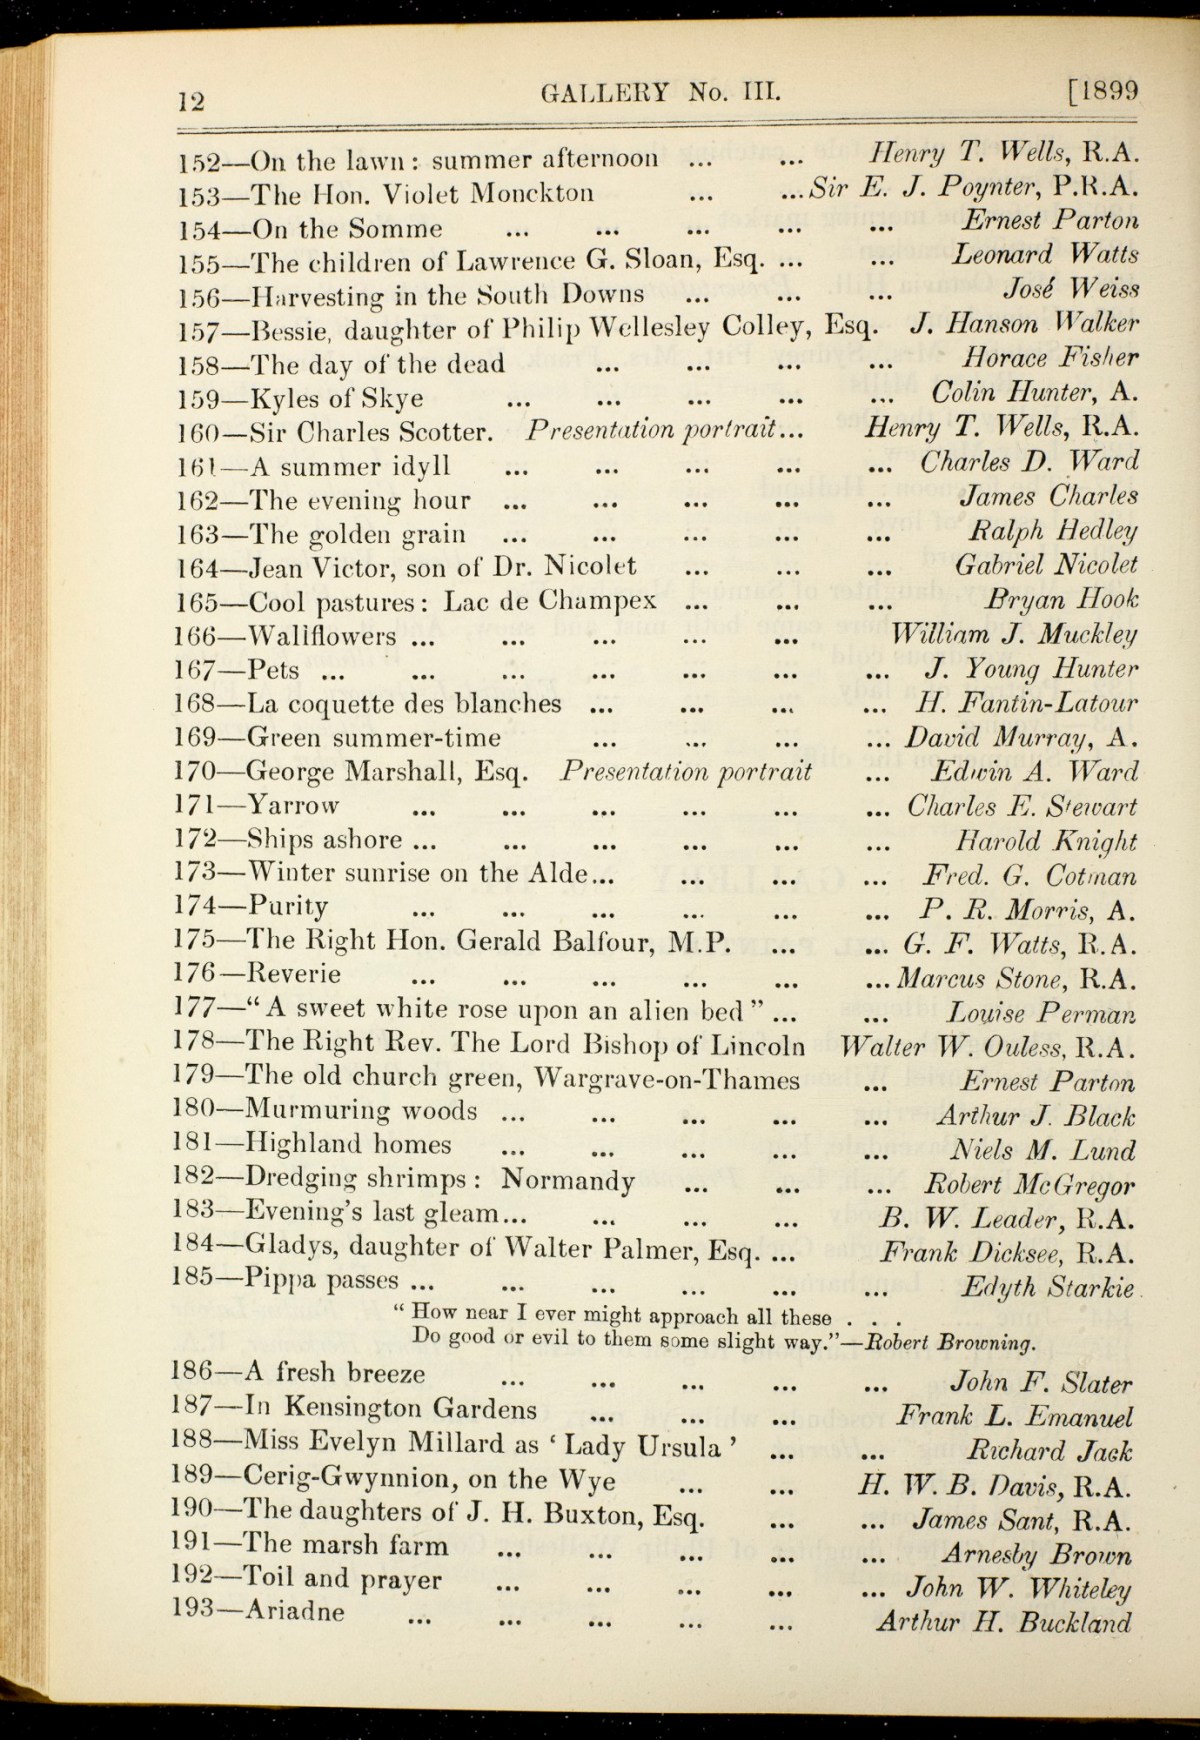 12 GALLERY No. III. [1899
152—On the lawn : summer afternoon ... ... Henry T. Wells, R.A.
153—The Hon. Violet Monckton ... ... Sir E. J. Poynter, P.R.A.
154—On the Somme ... ... ... ... ... Ernest Parton
155—The children of Lawrence G. Sloan, Esq. ... ... Leonard Watts
156—Harvesting in the South Downs ... ... ... José Weiss
157—Bessie, daughter of Philip Wellesley Colley, Esq. J. Hanson Walker
158—The day of the dead ... ... ... ... Horace Fisher
159—Kyles of Skye ... ... ... ... ... Colin Hunter, A.
160—Sir Charles Scotter. Presentation portrait... Henry T. Wells, R.A.
161—A summer idyll ... ... ... ... ... Charles D. Ward
162—The evening hour ... ... ... ... ... James Charles
163—The golden grain ... ... ... ... ... Ralph Hedley
164—Jean Victor, son of Dr. Nicolet ... ... ... Gabriel Nicolet
165—Cool pastures : Lac de Champex ... ... ... Bryan Hook
166—Wallflowers ... ... ... ... ... William J. Muckley
167—Pets ... ... ... ... ... ... ... J. Young Hunter
168—La coquette des blanches ... ... ... ... H. Fantin-Latour
169—Green summer-time ... ... ... ... David Murray, A.
170—George Marshall, Esq. Presentation portrait ... Edwin A. Ward
171—Yarrow ... ... ... ... ... ... Charles E. Stewart
172—Ships ashore ... ... ... ... ... ... Harold Knight
173—Winter sunrise on the Alde... ... ... ... Fred. G. Cotman
174—Purity ... ... ... ... ... ... P. R. Morris, A.
175—The Right Hon. Gerald Balfour, M.P. ... ... G. F. Watts, R.A.
176—Reverie ... ... ... ... ... ... Marcus Stone, R.A.
177—“ A sweet white rose upon an alien bed ” ... ... Louise Perman
178—The Right Rev. The Lord Bishop of Lincoln Walter W. Ouless, R.A.
179—The old church green, Wargrave-on-Thames ... Ernest Parton
180—Murmuring woods ... ... ... ... ... Arthur J. Black
181—Highland homes ... ... ... ... ... Niels M. Lund
182—Dredging shrimps : Normandy ... ... ... Robert McGregor
183—Evening’s last gleam... ... ... ... B. W. Leader, R.A.
184—Gladys, daughter of Walter Palmer, Esq. ... Frank Dicksee, R.A.
185—Pippa passes ... ... ... ... ... ... Edyth Starkie
“ How near I ever might approach all these . . .
Do good or evil to them some slight way.”—Robert Browning.
186—A fresh breeze ... ... ... ... ... John F. Slater
187—In Kensington Gardens ... ... ... Frank L. Emanuel
188—Miss Evelyn Millard as ‘ Lady Ursula ’ ... ... Richard Jack
189—Cerig-Gwynnion, on the Wye ... ... H. W. B. Davis, R.A.
190—The daughters of J. H. Buxton, Esq. ... ... James Sant, R.A.
191—The marsh farm ... ... ... ... ... Arnesby Brown
192—Toil and prayer ... ... ... ... ... John W. Whiteley
193—Ariadne ... ... ... ... ... Arthur H. Buckland